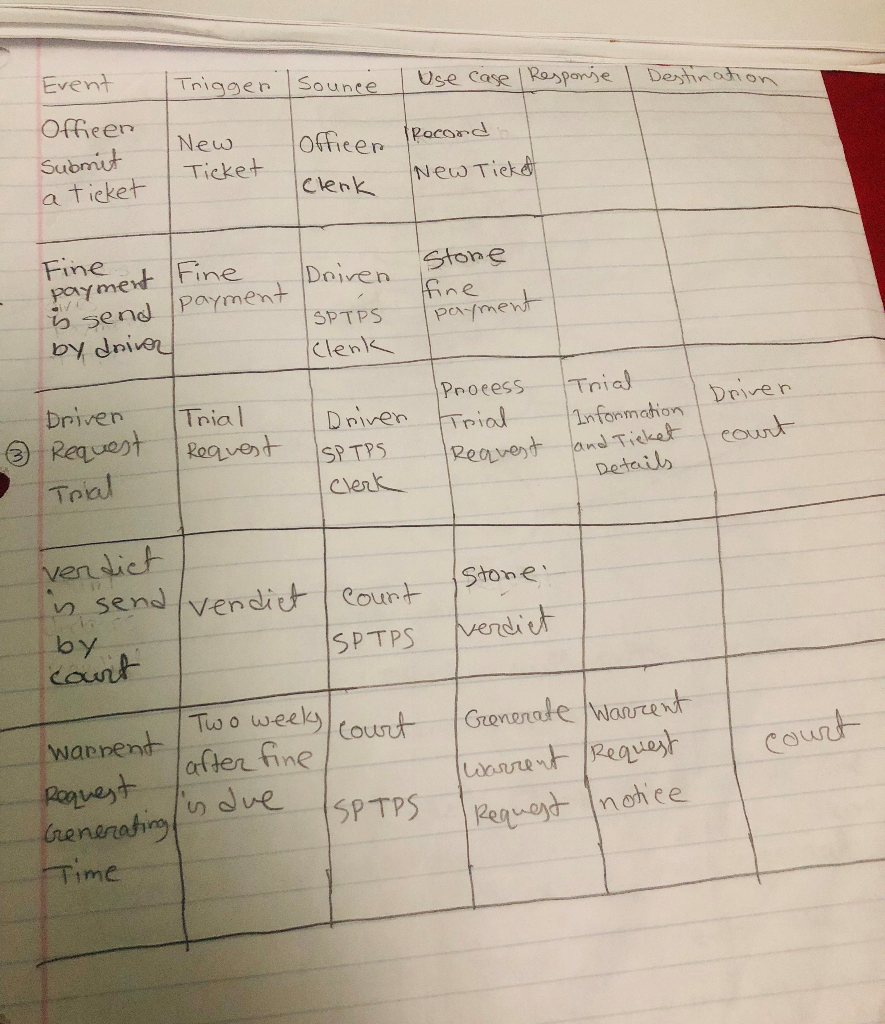 Event Trigger Source Use Case Response Destination
Officer
Submit
a Ticket
New
Ticket
Officer
Clerk
Record
New Ticket
Fine
payment
is send
by driver
Fine
payment
Driver
SPTPS
Clerk
Store
fine
payment
③
Driver
Request
Trial
Trial
Request
Driver
SPTPS
Clerk
Process
Trial
Request
Trial
Information
and Ticket
Details
Driver
court
verdict
is send
by
court
verdict
Court
SPTPS
Store
verdict
Warrent
Request
Generating
Time
Two weeks
after fine
is due
Court
SPTPS
Generate
Warrent
Request
Warrent
Request
notice
court